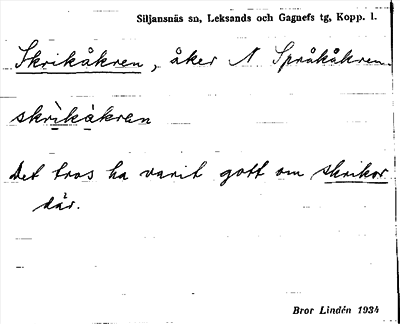 Siljansnäs sn, Leksands och Gagnefs tg, Kopp. l.
Skrikåkren, åker N. Språkåkren.
skrìkå̀kran
Det tros ha varit gott om skrikor
där.
Bror Lindén 1934